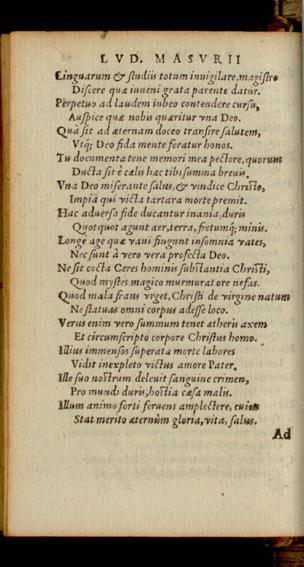 LVD. MASVRII
Linguarum & studiis totum inuigilare, magistro
Discere quæ iuueni grata parente datur.
Perpetuo ad laudem iubeo contendere cursu,
Auspice quæ nobis quæritur vna Deo.
Qua sit ad æternam doceo transire salutem,
Vtq; Deo fida mente feratur honos.
Tu documenta tene memori mea pectore, quorum
Ducta sit è cælis hæc tibi summa breuis.
Vna Deo miserante salus, & vindice Christo,
Impia qui victa tartara morte premit.
Hac aduersa fide ducantur inania, duris
Quotquot agunt aer, terra, fretumq; minis.
Longe age quæ vani fingunt insomnia vates,
Nec sunt à vero vera profecta Deo.
Ne sit cocta Ceres hominis substantia Christi,
Quod mystes magico murmurat ore nefas.
Quod mala fraus vrget, Christi de virgine natum
Ne statuas omni corpus adesse loco.
Verus enim vero summum tenet ætheris axem
Et circumscripto corpore Christus homo.
Illius immensos superata morte labores
Vidit inexpleto victus amore Pater.
Ille suo nostrum deleuit sanguine crimen,
Pro mundi duris, hostia cæsa malis.
Illum animo forti feruens amplectere, cuius
Stat merito æternùm gloria, vita, salus.
Ad